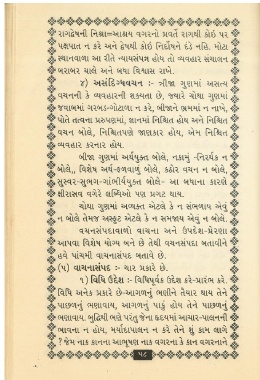 રાગદ્વેષની નિશ્રા=આશ્રય વગરનો પ્રવર્તે રાગથી કોઇ પર
પક્ષપાત ન કરે અને દ્વેષથી કોઇ નિર્દોષને દંડે નહિ. મોટા
સ્થાનવાળા આ રીતે ન્યાયસંપન્ન હોય તો વ્યવહાર સંચાલન
બરાબર ચાલે અને બધા વિશ્વાસ રાખે.
૪) અસંદિગ્ધવચન :- ત્રીજા ગુણમાં અસત્ય
વચનની કે વ્યવહારની શક્યતા છે. જ્યારે ચોથા ગુણમાં
જવાબમાં ગરબડ-ગોટાળા ન કરે, બીજાને ભ્રમમાં ન નાખે.
પોતે તત્વના પ્રરુપણમાં, જ્ઞાનમાં નિશ્ચિત હોય અને નિશ્ચિત
વચન બોલે, નિશ્ચિતપણે જાણકાર હોય, એમ નિશ્ચિત
વ્યવહાર કરનાર હોય.
બીજા ગુણમાં અર્થયુક્ત બોલે, નકામું -નિરર્થક ન
બોલે, વિશેષ અર્થ-ફળવાળું બોલે, કઠોર વચન ન બોલે,
સુસ્વર-સુભગ-ગાંભીર્યયુક્ત બોલે- આ બધાના કારણે
ક્ષીરાસ્રવ વગેરે લબ્ધિઓ પણ પ્રગટ થાય.
ચોથા ગુણમાં અવ્યક્ત એટલે કે ન સંભળાય એવું
ન બોલે તેમજ અસ્ફુટ એટલે કે ન સમજાય એવું ન બોલે.
વચનસંપદાવાળો વાચના અને ઉપદેશ-પ્રેરણા
આપવા વિશેષ યોગ્ય બને છે તેથી વચનસંપદા બતાવીને
હવે પાંચમી વાચનાસંપદા બતાવે છે.
(૫) વાચનાસંપદ :- ચાર પ્રકારે છે.
૧) વિધિ ઉદ્દેશ :- વિધિપૂર્વક ઉદ્દેશ કરે-પ્રારંભ કરે.
વિધિ અનેક પ્રકારે છે-આગળનું ભણીને તૈયાર થાય તેને
પાછળનું ભણાવાય, આગળનું પાકું હોય તેને પાછળનું
ભણાવાય. બુદ્ધિથી ભણે પરંતુ જેના હૃદયમાં આચાર-પાલનની
ભાવના ન હોય, મર્યાદાપાલન ન કરે તેને શું કામ લાગે
? જેમ નાક કાનના આભૂષણ નાક વગરના કે કાન વગરનાને
૫૮